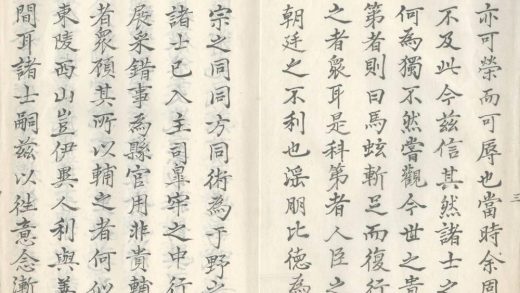 三
亦可榮而可辱也當時余
不及此今茲信其然諸士之
何為獨不然嘗觀今世之貴
第者則曰馬蚿斬足而復行
之者衆耳是科第者人臣之
朝廷之不利也淫朋比德為
宗之同同方同術為于野之
諸士已入主司皐牢之中行
展采錯事為縣官用非貴輔
者衆頋其所以輔之者何似
東陵西山豈伊異人利與善
間耳諸士嗣茲以徃意念漸